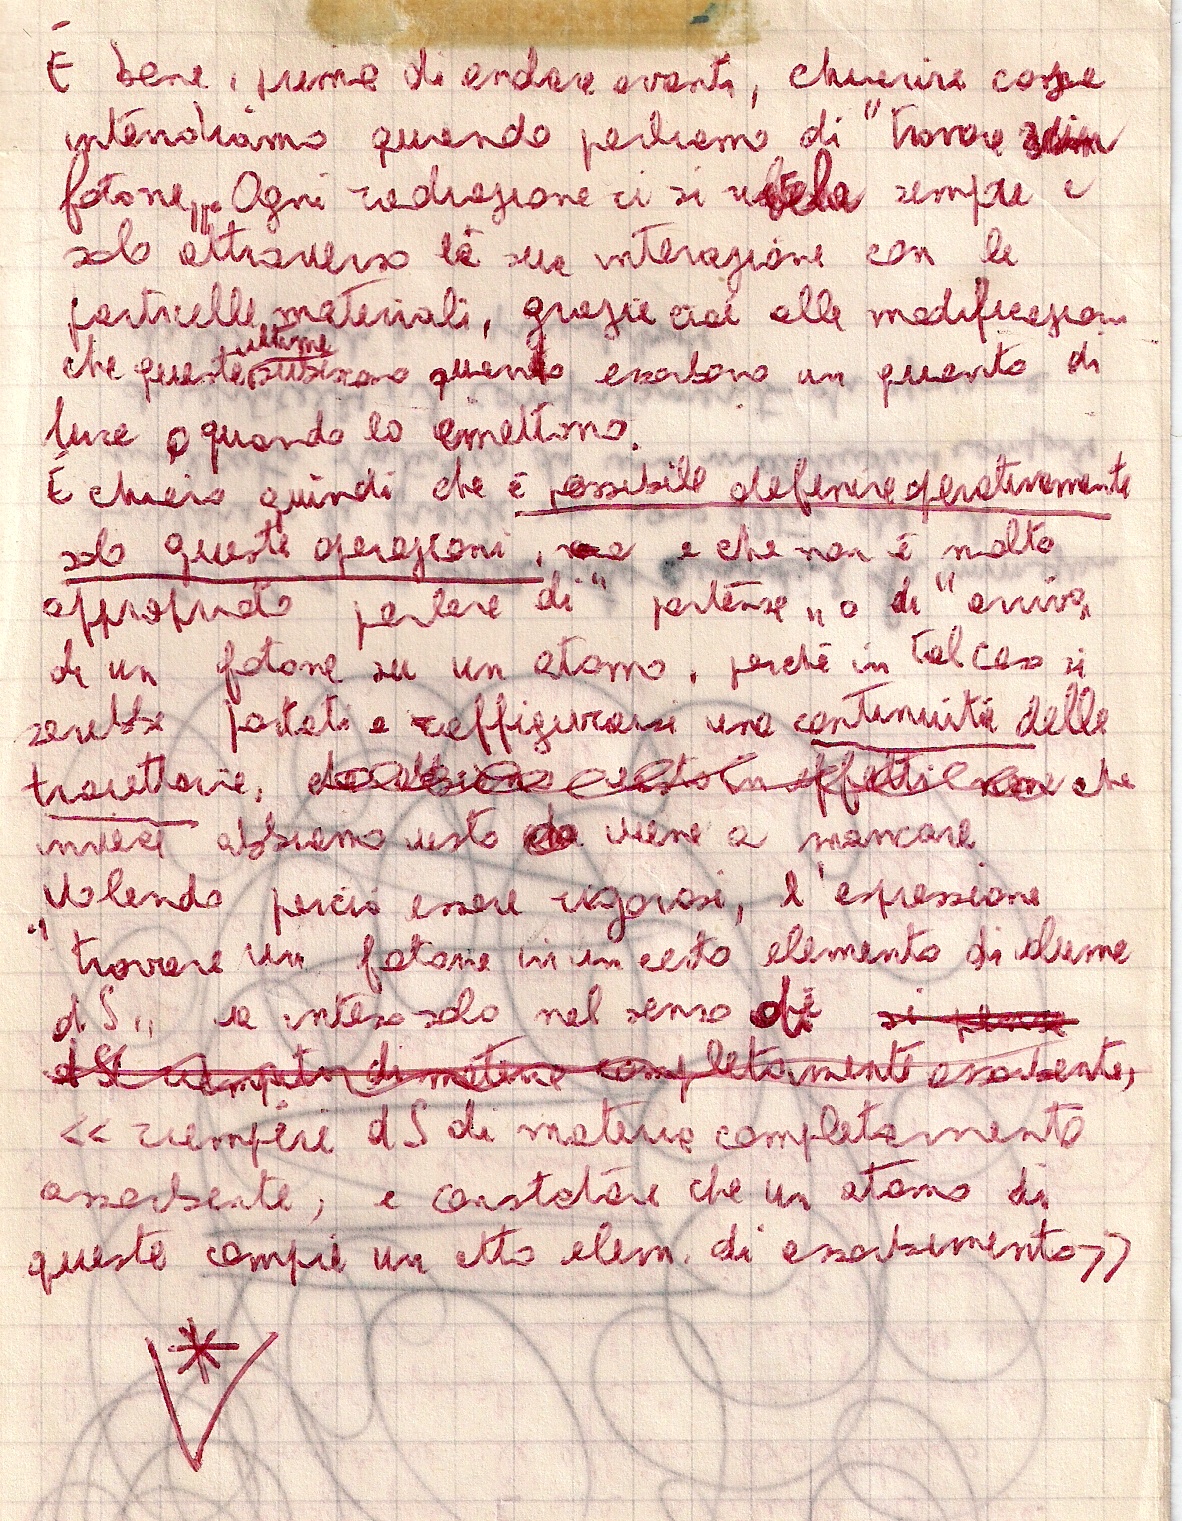 É bene, prima di andare avanti, chiarire cosa
intendiamo quando parliamo di "trovare un
fotone„. Ogni radiazione ci si rivela sempre e
solo attraverso la sua interazione con le
particelle materiali, grazie cioè alle modificazioni
che queste ultime subiscono quando assorbono un quanto di
luce o quando lo emettono.
É chiaro quindi che è possibile definire operativamente
solo queste operazioni, e che non è molto
appropriato parlare di "partenza„ o di "arrivo„
di un fotone su un atomo, perchè in tal caso si
sarebbe portati a raffigurarsi una continuità delle
traiettorie, che
invece abbiamo visto viene a mancare
Volendo perciò essere rigorosi, l'espressione
"trovare un fotone in un certo elemento di volume
dS„ va inteso solo nel senso di si pone
dS riempito di materia completamente assorbente,
<< riempire dS di materia completamente
assorbente, e constatare che un atomo di
questa compie un atto elem. di assorbimento>>
*